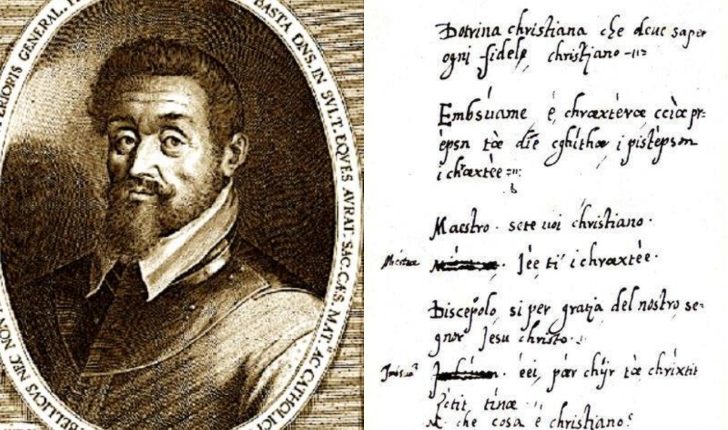 ERIORIS GENERAL.
BASTA DNS. IN SVLT. EQVES AVRAT. SAC. CÆS. MAT. AC CATHOLICI
BELLICVS NEC NON
Dotrina christiana che deue saper
ogni fidele christiano
Embsuame é chraxtéræ cciæ pr-
épsn tæ díe cghíthæ i pistépsm
i chraxtée
Maestro. sete uoi christiano.
Jéè ti i chraxtée.
Discepolo, si per gratia del nostro se-
gnor Jesu christo.
éei, pær chÿr tæ chrixtit
Zotit tinæ
M. che cosa è christiano?